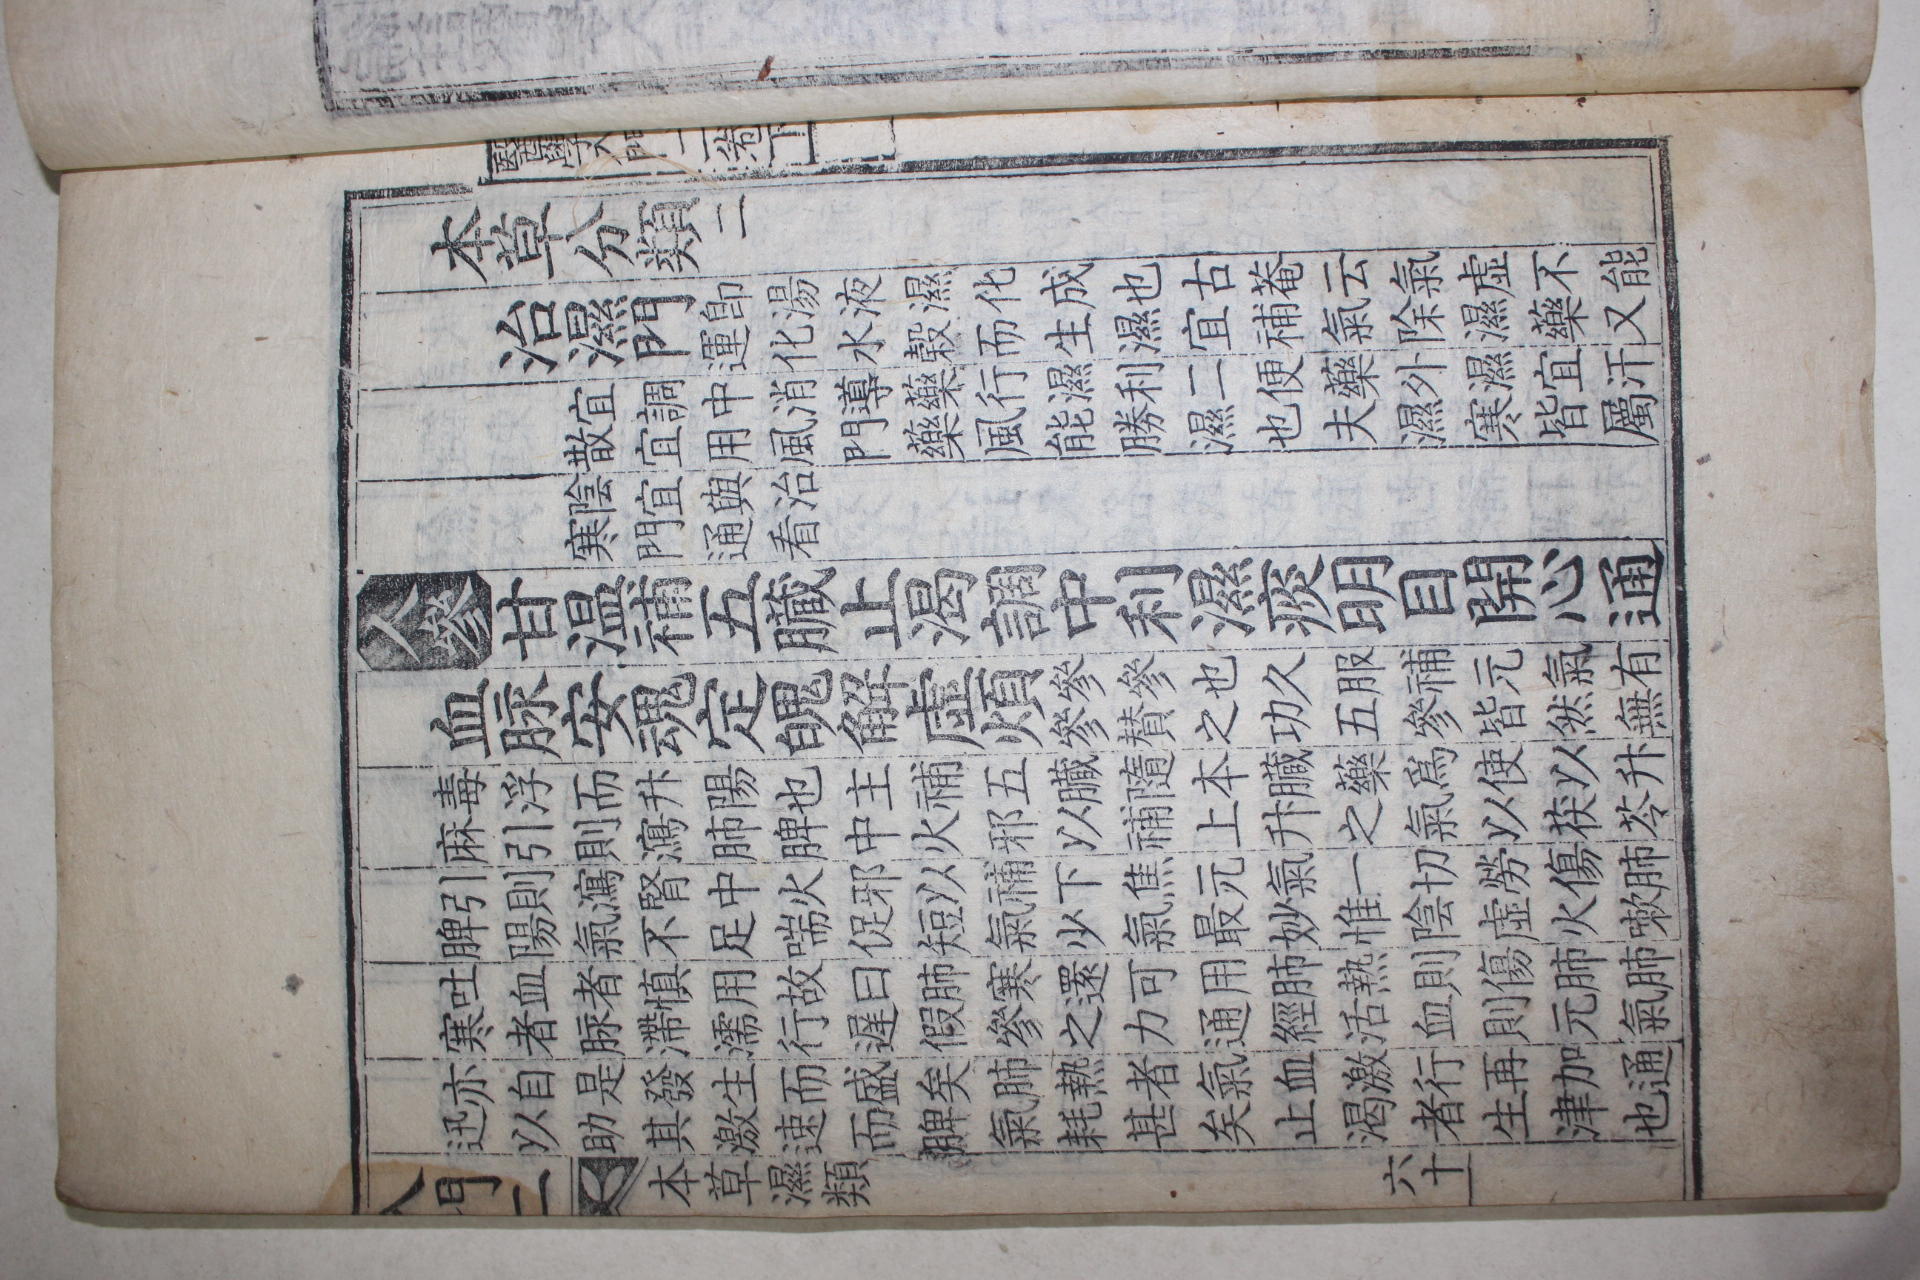 本草分類二
治濕門 即湯液濕化成也古菴云氣虛不能
運化水穀而生濕宜補氣除濕藥又
宜調中消導藥行濕利二便藥外濕宜汗
散宜用風門藥風能勝濕也夫濕寒皆屬
陰宜與治
寒門通看
人參 甘溫補五臟止渴調中利濕痰明目開心通
血脉安魂定魄解虛煩 參參也久服補元氣有
參贊之功五參皆然無
毒浮而升陽也主補五臟隨本臟藥爲使以升
麻引則瀉肺脾中火邪以補上升之氣以茯苓
引則瀉腎中火邪以補下焦元氣一切勞傷肺
脾陽氣不足喘促短氣少氣最妙惟陰虛火嗽
吐血者慎用故曰肺寒還可用肺熱則傷肺肺
寒者脉滯濡行遲假參之力通經活血則元氣
亦自是發生而盛矣肺熱者氣血激行再加通
迅以助其激速而脾氣耗甚矣止渴者生津也
門二
本草濕類
六十